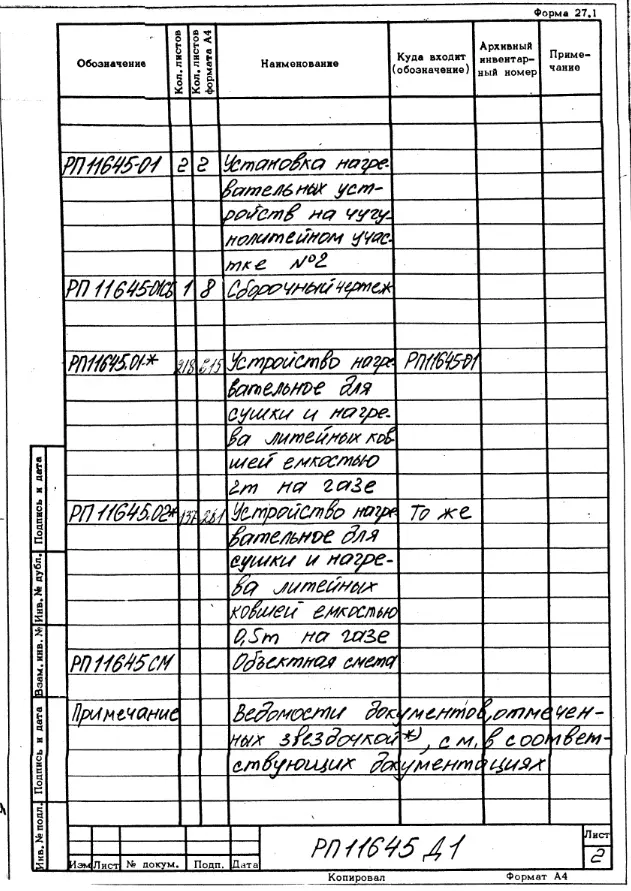 Форма 27.1
Обозначение Кол. листов Кол. листов формата А4 Наименование Куда входит (обозначение) Архивный инвентарный номер Примечание
РП11645-01 2 2 Установка нагре-
вательных уст-
ройств на чугу-
нолитейном учас-
тке №2
РП 11645-01СБ 1 8 Сборочный чертеж
РП11645.01* 218 Устройство нагре РП11645-01
вательное для
сушки и нагре-
ва литейных ков
шей емкостью
2т на газе
РП 11645.02* 137 Устройство нагре То же
вательное для
сушки и нагре-
ва литейных
ковшей емкостью
0,5т на газе
РП11645СМ Объектная смета
Примечание Ведомости документов, отмечен-
ных звездочкой *), см. в соответ-
ствующих документациях
Инв. № подл. Подпись и дата Взам. инв. № Инв. № дубл. Подпись и дата
Изм Лист № докум. Подп. Дата
РП11645 Д1
Лист
2
Копировал Формат А4